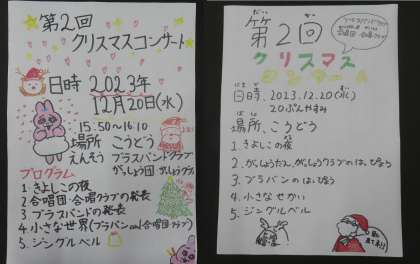 第2回
クリスマスコンサート
日時 2023年
12月20日(水)
15:50~16:10
場所 こうどう
えんそう ブラスバンドクラブ
がっしょう団 がっしょうクラブ
プログラム
1. きよしこの夜
2. 合唱団・合唱クラブの発表
3. ブラスバンドの発表
4. 小さな世界(ブラバン and 合唱クラブ)
5. ジングルベル
だい かい
第2回
クリスマス
コンサート
日時. 2023.12.20(水)
20ぷんやすみ
場所. こうどう
1. きよしこの夜
2. がっしょうだん、がっしょうクラブのはっぴょう
3. ブラバンのはっぴょう
4. 小さなせかい
5. ジングルベル